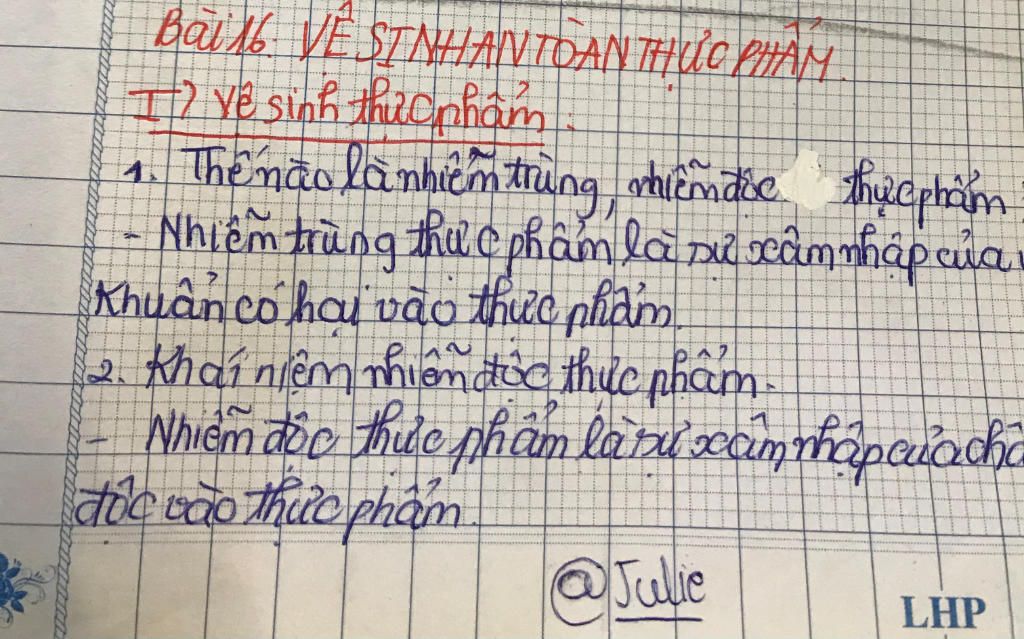 Bài 16. VỆ SINH AN TOÀN THỰC PHẨM.
I) Vệ sinh thực phẩm.
1. Thế nào là nhiễm trùng, nhiễm độc thực phẩm
- Nhiễm trùng thực phẩm là sự xâm nhập của
khuẩn có hại vào thực phẩm.
2. Khái niệm nhiễm độc thực phẩm.
- Nhiễm độc thực phẩm là sự xâm nhập của
độc vào thực phẩm.
@Julie
LHP